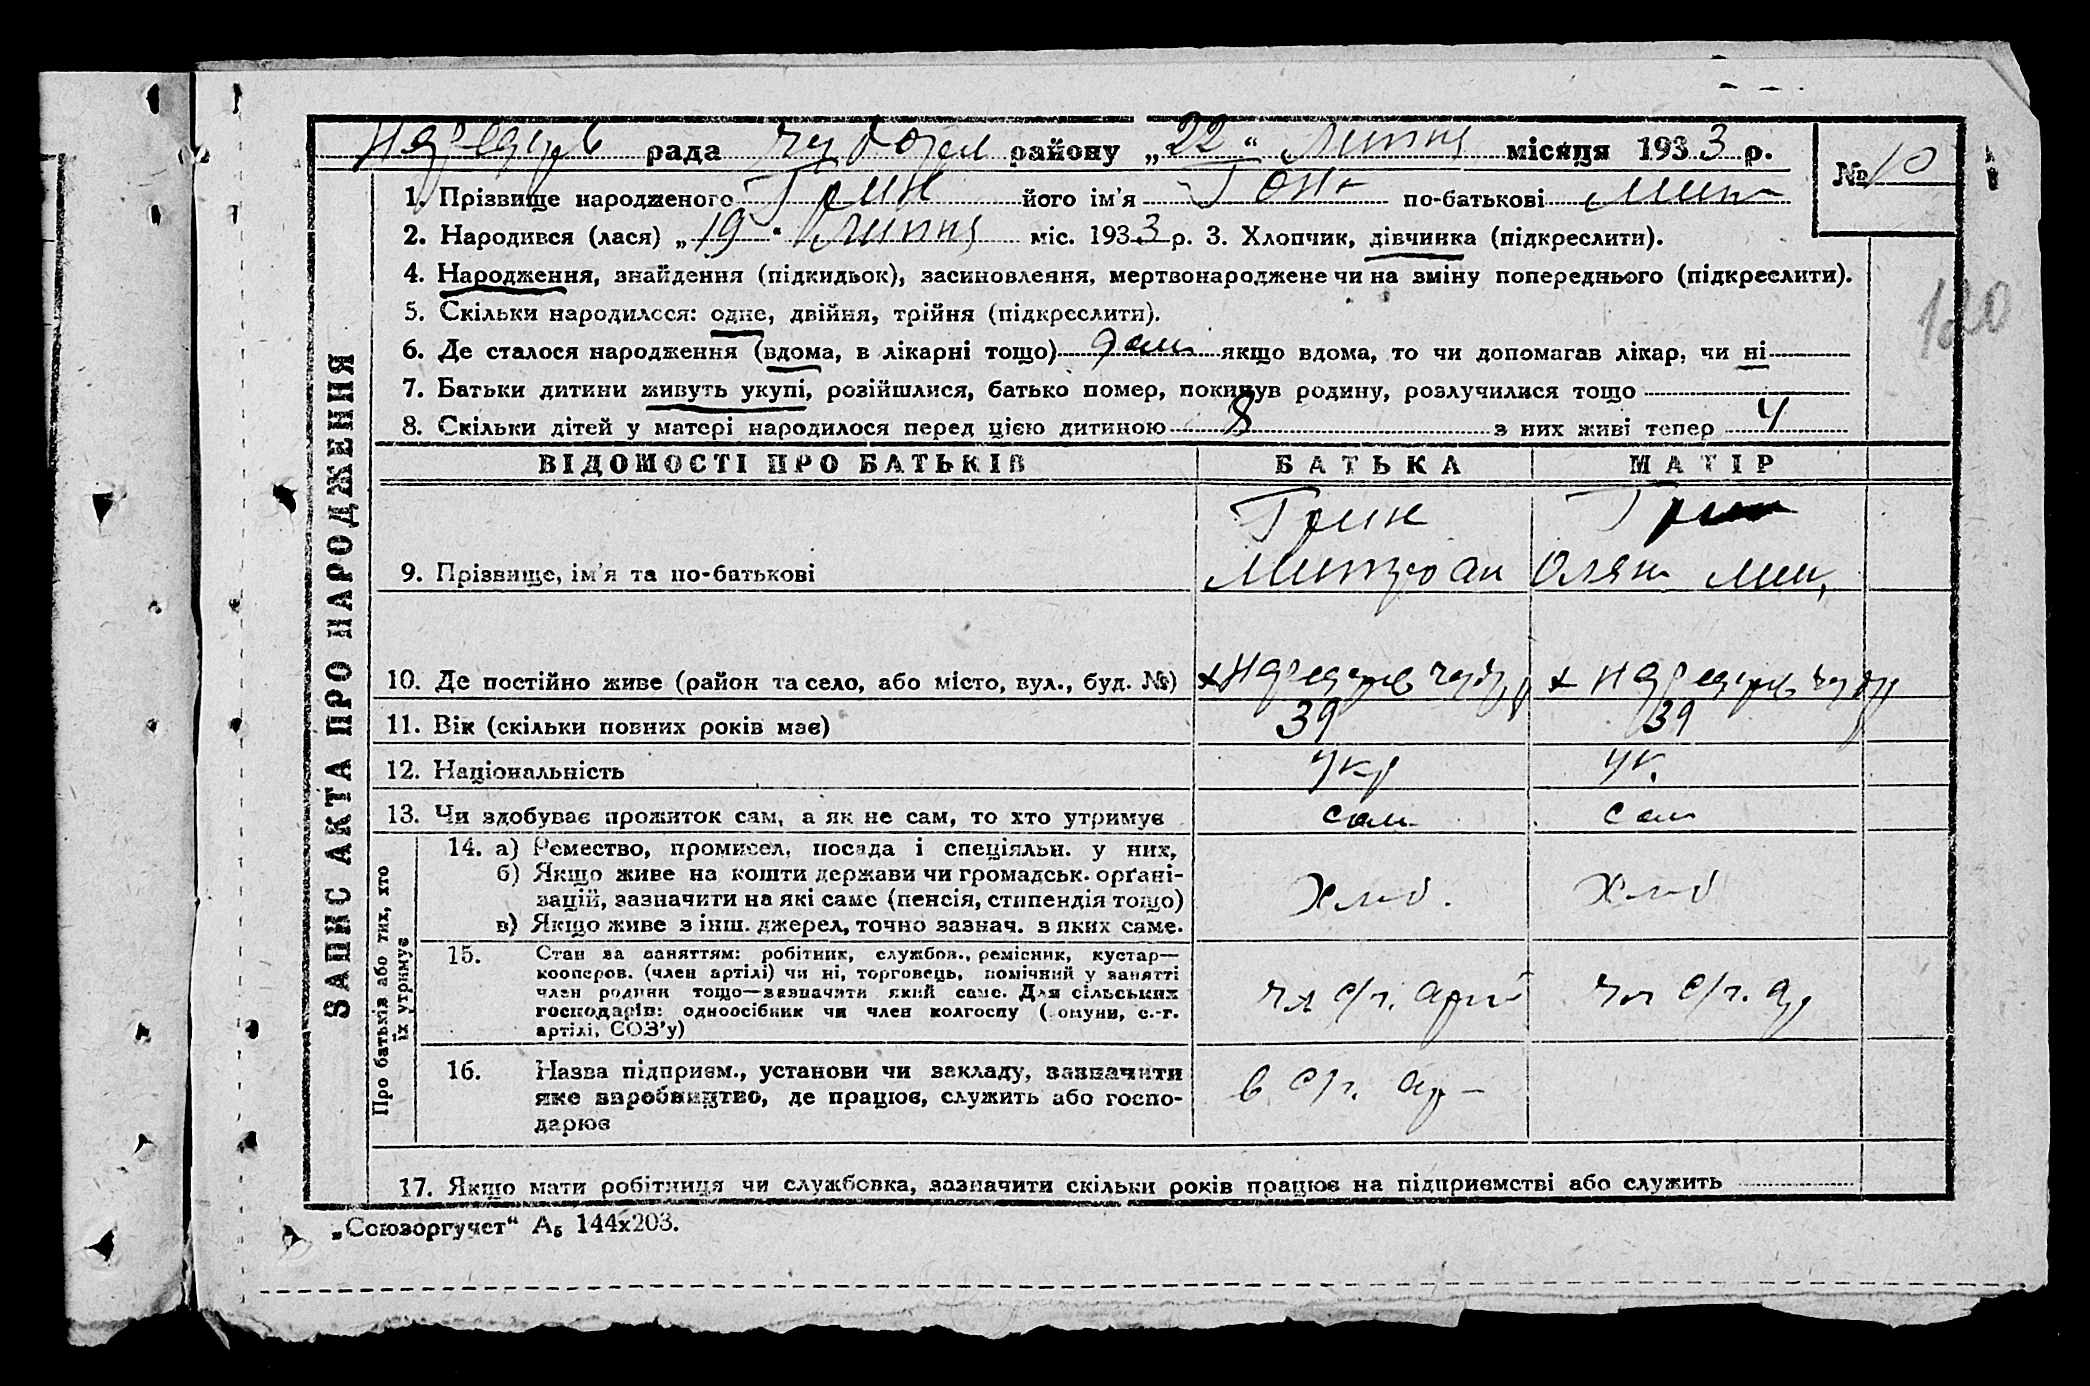 рада району „22“ Липня місяця 1933 р.
№ 10
1. Прізвище народженого Грин його ім'я по-батькові Мит
2. Народився (лася) „19“ Липня міс. 1933 р. 3. Хлопчик, дівчинка (підкреслити).
4. Народження, знайдення (підкидьок), засиновлення, мертвонароджене чи на зміну попереднього (підкреслити).
120
5. Скільки народилося: одне, двійня, трійня (підкреслити).
6. Де сталося народження (вдома, в лікарні тощо) дома якщо вдома, то чи допомагав лікар, чи ні
7. Батьки дитини живуть укупі, розійшлися, батько помер, покинув родину, розлучилися тощо
8. Скільки дітей у матері народилося перед цією дитиною 8 з них живі тепер 4
ЗАПИС АКТА ПРО НАРОДЖЕННЯ
ВІДОМОСТІ ПРО БАТЬКІВ БАТЬКА МАТІР
Грин
9. Прізвище, ім'я та по-батькові
10. Де постійно живе (район та село, або місто, вул., буд. №)
11. Вік (скільки повних років має) 39 39
12. Національність укр ук.
13. Чи здобуває прожиток сам, а як не сам, то хто утримує сам сам
Про батьків або тих, хто їх утримує
14. а) Ремество, промисел, посада і спеціяльн. у них,
б) Якщо живе на кошти держави чи громадськ. орґані-
зацій, зазначити на які саме (пенсія, стипендія тощо)
в) Якщо живе з інш. джерел, точно зазнач. з яких саме.
Хліб. Хліб
15. Стан за заняттям: робітник, службов., ремісник, кустар—
кооперов. (член артілі) чи ні, торговець, помічний у занятті
член родини тощо—зазначити який саме. Для сільських
господарів: одноосібник чи член колгоспу (комуни, с.-г.
артілі, СОЗ'у)
чл с/г. арт чл с/г. ар
16. Назва підприєм., установи чи закладу, зазначити
яке виробництво, де працює, служить або госпо-
дарює
в с/г. ар
17. Якщо мати робітниця чи службовка, зазначити скільки років працює на підприємстві або служить
„Союзоргучет“ А₅ 144х203.